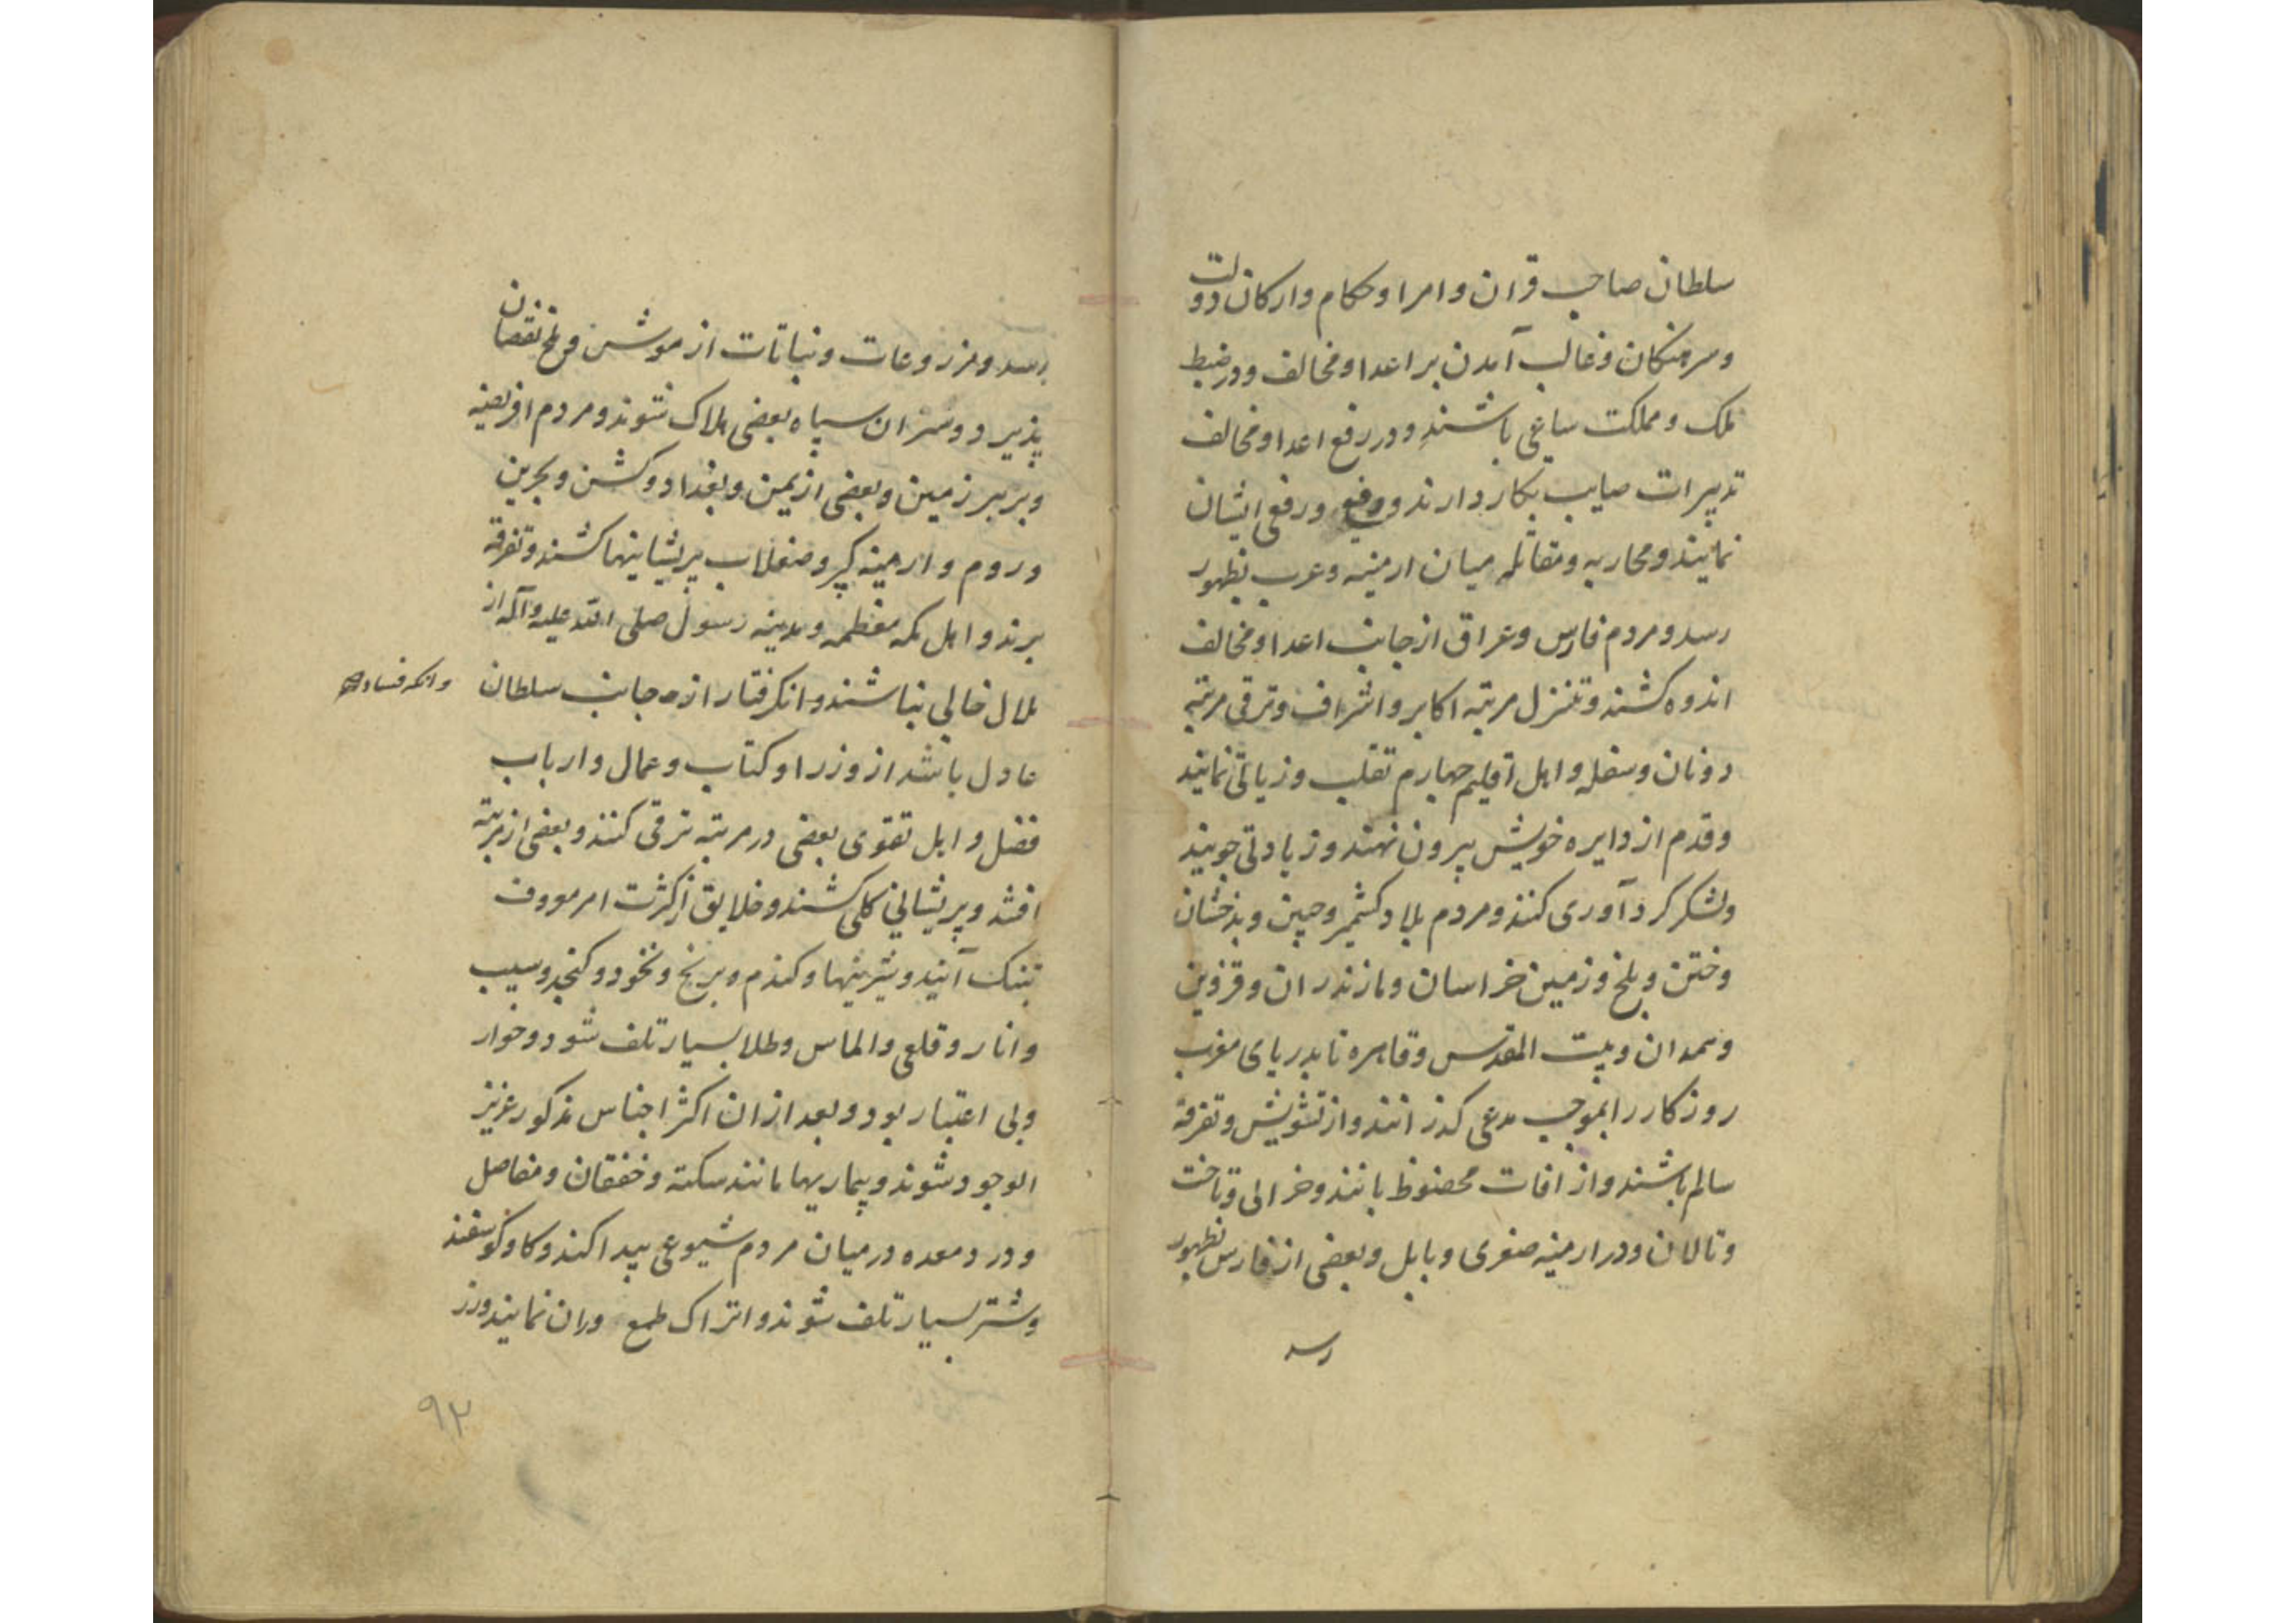 سلطان صاحب قران و امرا و حکام و ارکان دولت
و سرهنکان و غالب آمدن بر اعدا و مخالف و در ضبط
ملک و مملکت ساعی باشند و در رفع اعدا و مخالف
تدبیرات صایب بکار دارند و دفع و رفع ایشان
نمایند و محاربه و مقاتله میان ارمنیه و عرب بظهور
رسد و مردم فارس و عراق از جانب اعدا و مخالف
اندوه کشند و تنزل مرتبه اکابر و اشراف و ترقی مرتبه
دونان و سفله و اهل اقلیم چهارم تقلب و زیادتی نمایند
و قدم از دایره خویش بیرون نهند و زیادتی جویند
و لشکر کرد آوری کنند و مردم بلاد کشمیر و چین و بدخشان
و ختن و بلخ و زمین خراسان و مازندران و قزوین
و همدان و بیت المقدس و قاهره تا بدریای مغرب
روزکار را بموجب مدعی کذرانند و از تشویش و تفرقه
سالم باشند و از افات محفوظ مانند و خرابی و تاخت
و تالان و در ارمنیه صغری و بابل و بعضی از فارس بظهور
رسد
رسد و مزروعات و نباتات از موش و ملخ نقصان
پذیرد و سران سپاه بعضی هلاک شوند و مردم افریقیه
و بربر زمین و بعضی از یمن و بغداد و کش و بحرین
و روم و ارمینه کبر و صقلاب پریشانیها کشند و تفرقه
برند و اهل مکه معظمه و مدینه رسول صلی الله علیه و آله از
ملال خالی نباشند و انکه فتار ازه جانب سلطان
وانکه فساد
عادل باشد از وزرا و کتاب و عمال و ارباب
فضل و اهل تقوی بعضی در مرتبه ترقی کنند و بعضی از مرتبه
افتند و پریشانی کلی کشند و خلایق از کثرت امر معروف
بتنک آیند و شیرینیها و کندم و برنج و نخود و کنجد و سیب
و انار و قلعی و الماس و طلا بسیار تلف شود و خوار
و بی اعتبار بود و بعد از ان اکثر اجناس مذکور عزیز
الوجود شوند و بیماریها مانند سکته و خفقان و مفاصل
و درد معده در میان مردم شیوعی پیدا کند و کاو و کوسفند
و شتر بسیار تلف شوند و اتراک طمع دران نمایند و زر
۹۲